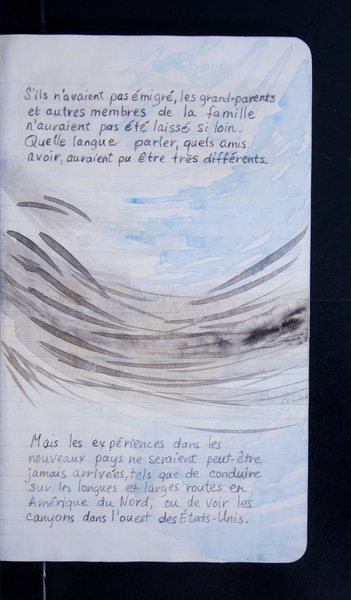 S'ils n'avaient pas émigré, les grand-parents
et autres membres de la famille
n'auraient pas été laissé si loin.
Quelle langue parler, quels amis
avoir, auraient pu être très différents.
Mais les expériences dans les
nouveaux pays ne seraient peut-être
jamais arrivées, tels que de conduire
sur les longues et larges routes en
Amérique du Nord, ou de voir les
canyons dans l'ouest des États-Unis.